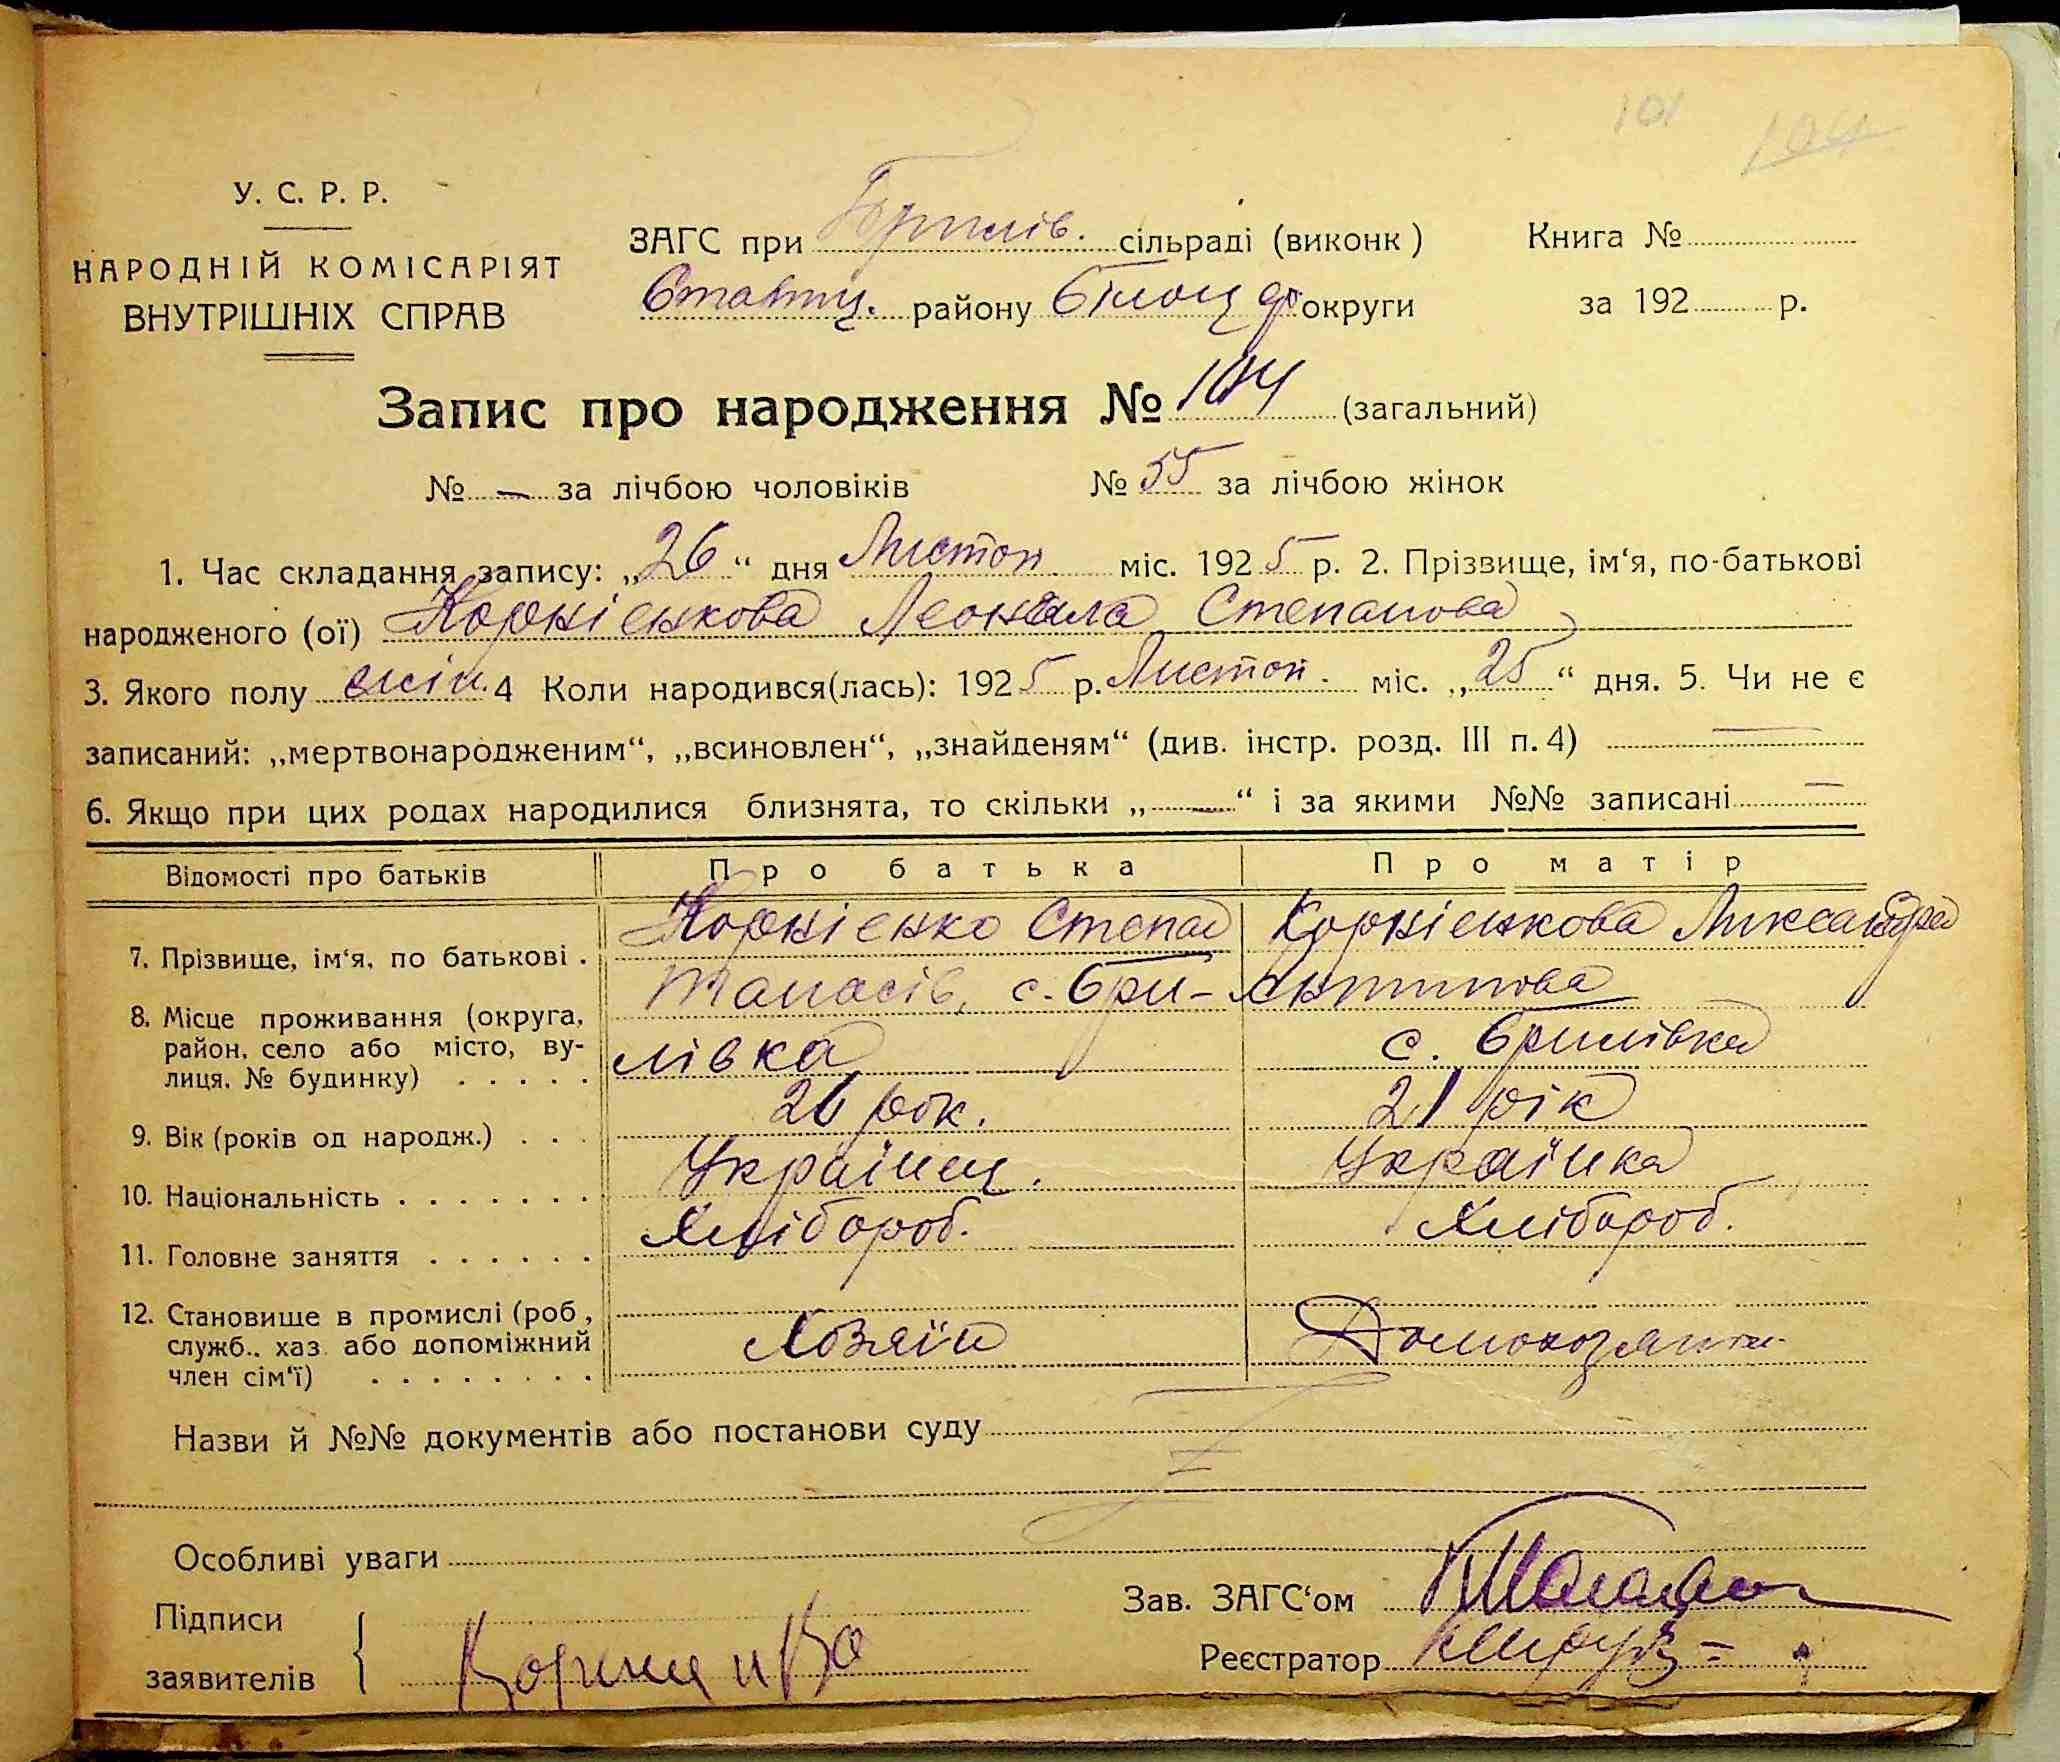 101 104
У. С. Р. Р.
НАРОДНІЙ КОМІСАРІЯТ
ВНУТРІШНІХ СПРАВ
ЗАГС при Брилів. сільраді (виконк)
Книга №
району округи
за 192 р.
Запис про народження № 104 (загальний)
№ — за лічбою чоловіків № 55 за лічбою жінок
1. Час складання запису: „26“ дня Листоп міс. 1925 р. 2. Прізвище, ім‘я, по-батькові
народженого (ої) Корнієнкова Леоніла Степанова
3. Якого полу жін. 4 Коли народився(лась): 1925 р. Листоп. міс. „25“ дня. 5. Чи не є
записаний: „мертвонародженим“, „всиновлен“, „знайденям“ (див. інстр. розд. III п. 4) —
6. Якщо при цих родах народилися близнята, то скільки „—“ і за якими №№ записані —
Відомості про батьків Про батька Про матір
7. Прізвище, ім‘я, по батькові . Корнієнко Степан Корнієнкова Лександра
Танасів, с. Бри- Антипова
8. Місце проживання (округа,
район, село або місто, ву-
лиця, № будинку) . . . . . лівка с. Брилівка
9. Вік (років од народж.) . . . 26 рок. 21 рік
10. Національність . . . . . . . Українец. Українка
11. Головне заняття . . . . . . Хлібороб. Хлібороб.
12. Становище в промислі (роб,
служб.. хаз. або допоміжний
член сім‘ї) . . . . . . . . Хозяїн
Назви й №№ документів або постанови суду
Особливі уваги
Підписи
заявителів
Зав. ЗАГС‘ом
Реєстратор